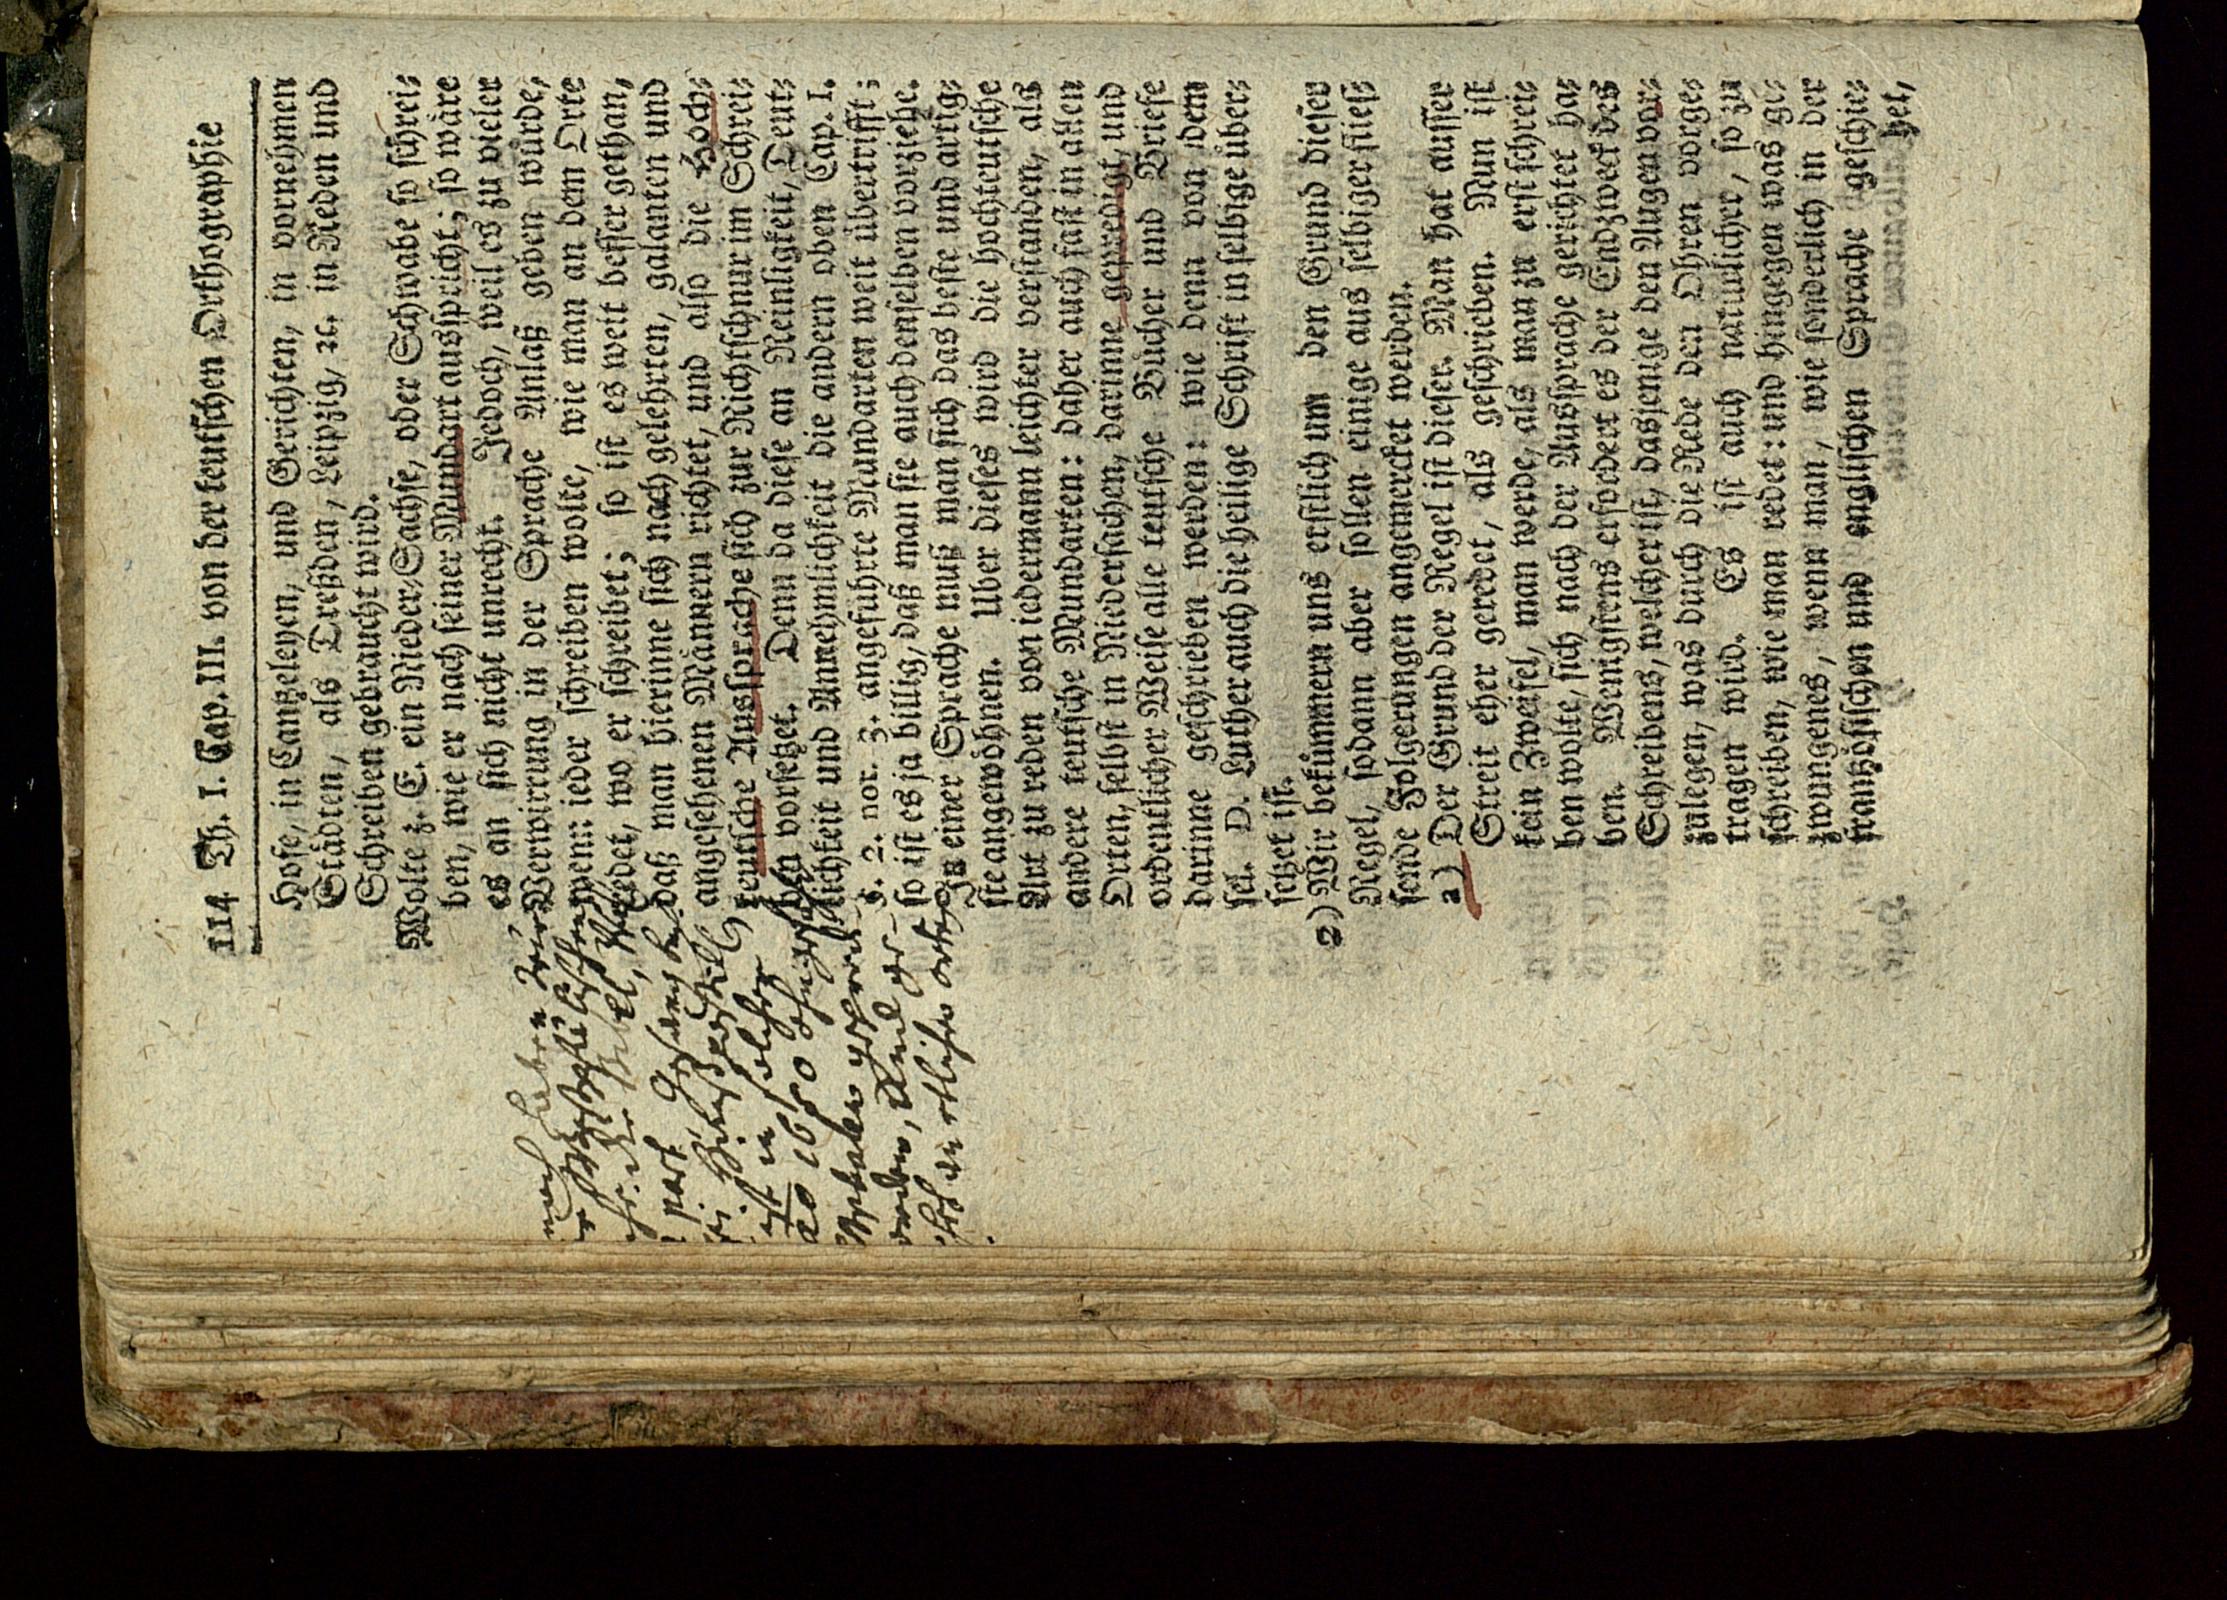 114 Th. I. Cap. III. von der teutschen Orthographie
Hofe, in Cantzeleyen, und Gerichten, in vornehmen
Städten, als Dreßden, Leipzig, ꝛc. in Reden und
Schreiben gebraucht wird.
Wolte z. E. ein Nieder-Sachse, oder Schwabe so schrei-
ben, wie er nach seiner Mundart ausspricht; so wäre
es an sich nicht unrecht. Jedoch, weil es zu vieler
Verwirrung in der Sprache Anlaß geben würde,
wenn ieder schreiben wolte, wie man an dem Orte
redet, wo er schreibet; so ist es weit besser gethan,
daß man hierinne sich nach gelehrten, galanten und
angesehenen Männern richtet, und also die Hoch-
teutsche Aussprache sich zur Richtschnur im Schrei-
ben vorsetzet. Denn da diese an Reinligkeit, Deut-
lichkeit und Annehmlichkeit die andern oben Cap. I.
§. 2. not. 3. angeführte Mundarten weit übertrifft;
so ist es ja billig, daß man sie auch denselben vorziehe.
In einer Sprache muß man sich das beste und artig-
ste angewöhnen. Uber dieses wird die hochteutsche
Art zu reden von iedermann leichter verstanden, als
andere teutsche Mundarten: daher auch fast in allen
Orten, selbst in Niedersachen, darinne geprediget, und
ordentlicher Weise alle teutsche Bücher und Briefe
darinne geschrieben werden: wie denn von dem
sel. D. Luther auch die heilige Schrift in selbige über-
setzet ist.
2) Wir bekümmern uns erstlich um den Grund dieser
Regel, sodann aber sollen einige aus selbiger fliess-
sende Folgerungen angemercket werden.
a) Der Grund der Regel ist dieser. Man hat ausser
Streit eher geredet, als geschrieben. Nun ist
kein Zweifel, man werde, als man zu erst schrei-
ben wolte, sich nach der Aussprache gerichtet ha-
ben. Wenigstens erfodert es der Endzweck des
Schreibens, welcher ist, dasjenige den Augen vor-
zulegen, was durch die Rede den Ohren vorge-
tragen wird. Es ist auch natürlicher, so zu
schreiben, wie man redet: und hingegen was ge-
zwungenes, wenn man, wie sonderlich in der
frantzösischen und englischen Sprache geschie-
het,